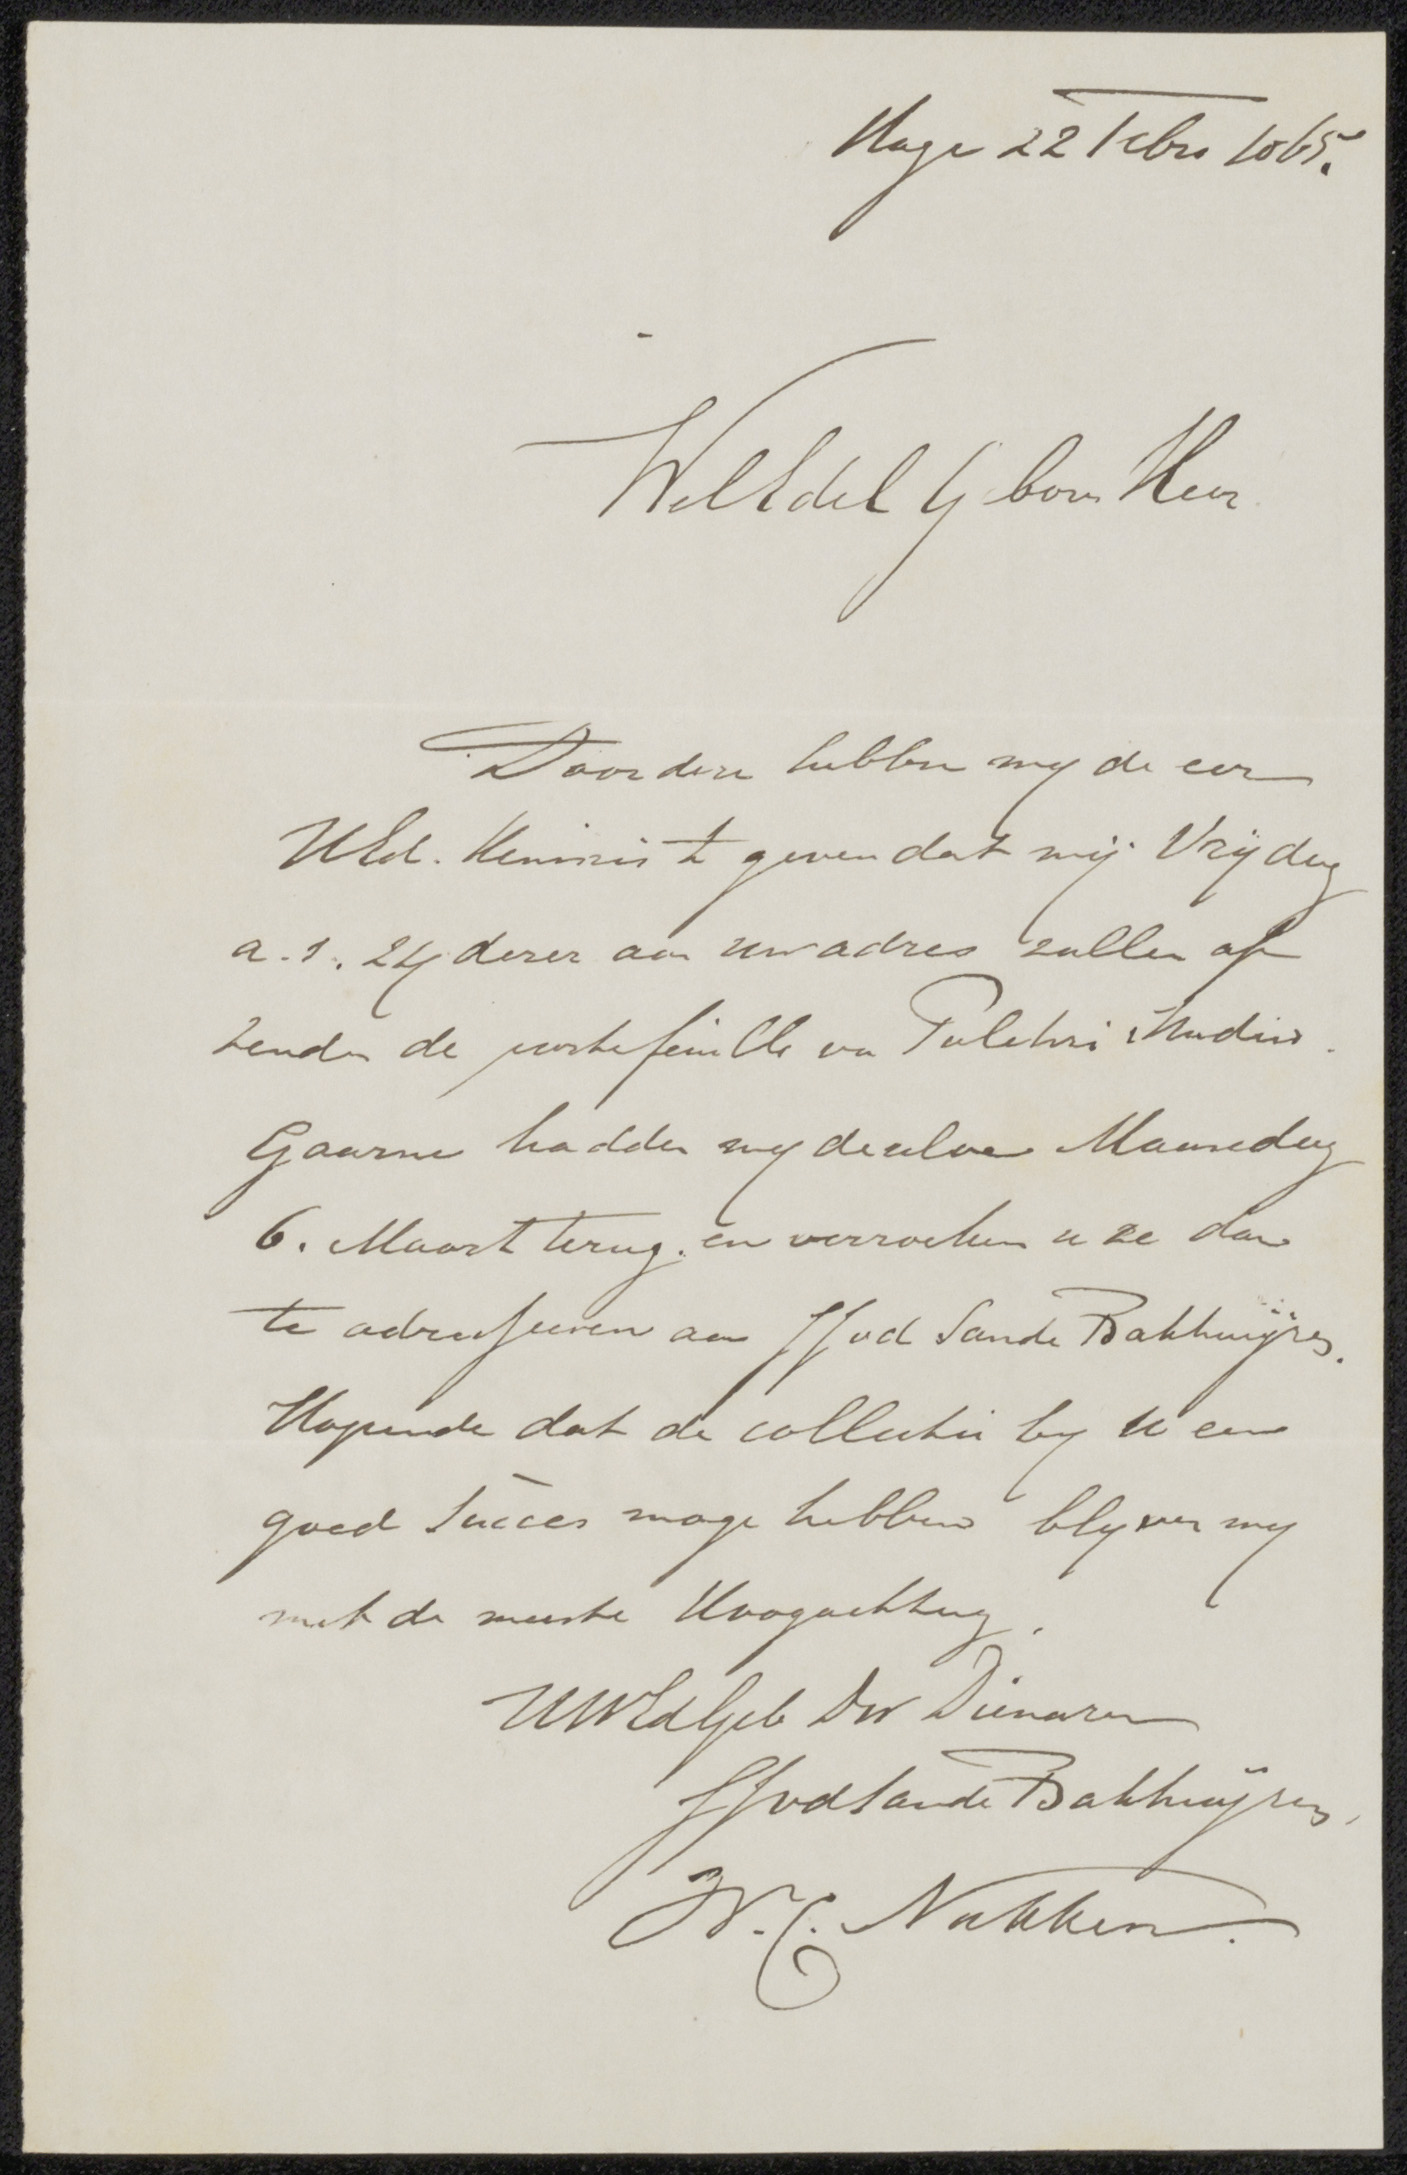 Hage 22 Febr 1865.
WelEdel Geboren Heer
Door deze hebben wy de eer
UEd. Kennis te geven dat wij Vrijdag
a.s. 24 dezer aan uw adres zullen af
zenden de portefeuille van Pulchri Studio.
Gaarne hadden wy dezelve Maandag
6. Maart terug. en verzoeken u ze dan
te adresseeren aan JJvd Sande Bakhuijzen.
Hopende dat de collectie by U een
goed Succes moge hebben blyven wy
met de meeste Hoogachting.
UWEdGeb Dw Dienaren
JJvdSande Bakhuijzen,
W. C. Nakken.